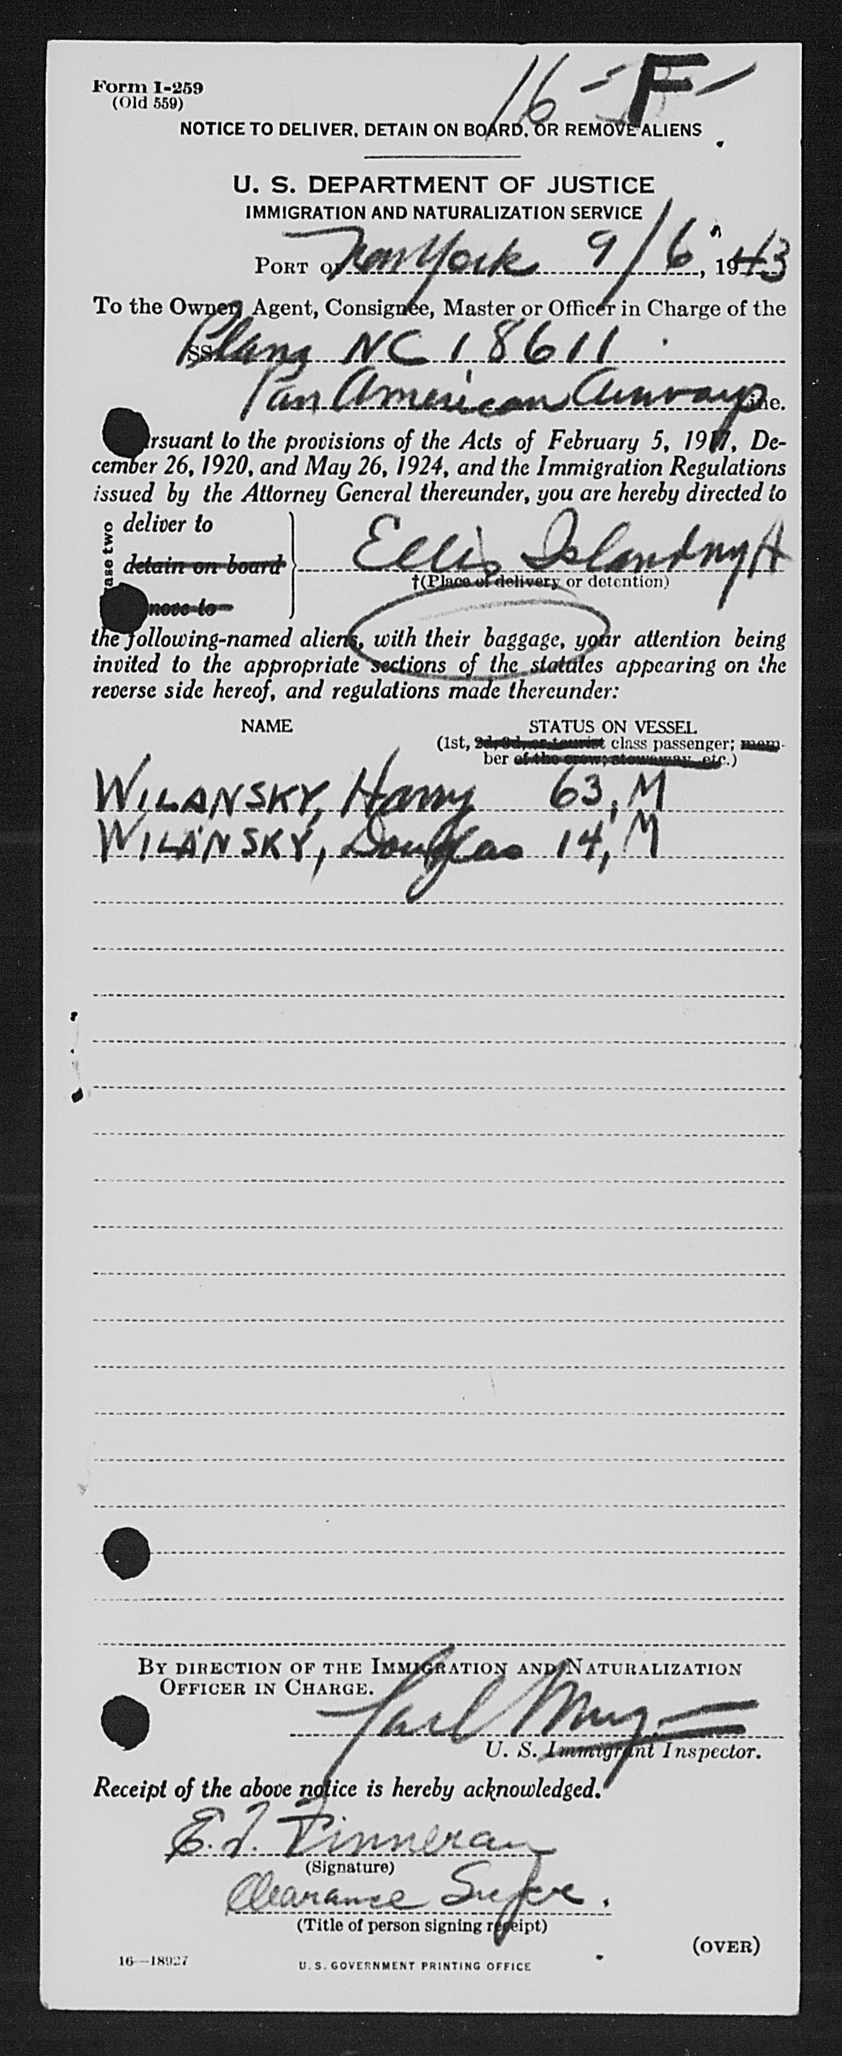 Form I-259
(Old 559)
16 - F -
NOTICE TO DELIVER, DETAIN ON BOARD, OR REMOVE ALIENS
U. S. DEPARTMENT OF JUSTICE
IMMIGRATION AND NATURALIZATION SERVICE
PORT OF New York 9/6, 1943
To the Owner, Agent, Consignee, Master or Officer in Charge of the
SS Plane NC 18611
Pan American Airways Line.
Pursuant to the provisions of the Acts of February 5, 1917, De-
cember 26, 1920, and May 26, 1924, and the Immigration Regulations
issued by the Attorney General thereunder, you are hereby directed to
deliver to
detain on board
Ellis Island NY H
†(Place of delivery or detention)
move to
ase two
the following-named aliens, with their baggage, your attention being
invited to the appropriate sections of the statutes appearing on the
reverse side hereof, and regulations made thereunder:
NAME STATUS ON VESSEL
(1st, 2d, 3d, or tourist class passenger; mem-
ber of the crew, stowaway, etc.)
WILANSKY, Harry 63, M
WILANSKY, Douglas 14, M
BY DIRECTION OF THE IMMIGRATION AND NATURALIZATION
OFFICER IN CHARGE.
Carl
U. S. Immigrant Inspector.
Receipt of the above notice is hereby acknowledged.
E. J. Finneran
(Signature)
Clearance
(Title of person signing receipt)
(OVER)
16—18927
U. S. GOVERNMENT PRINTING OFFICE